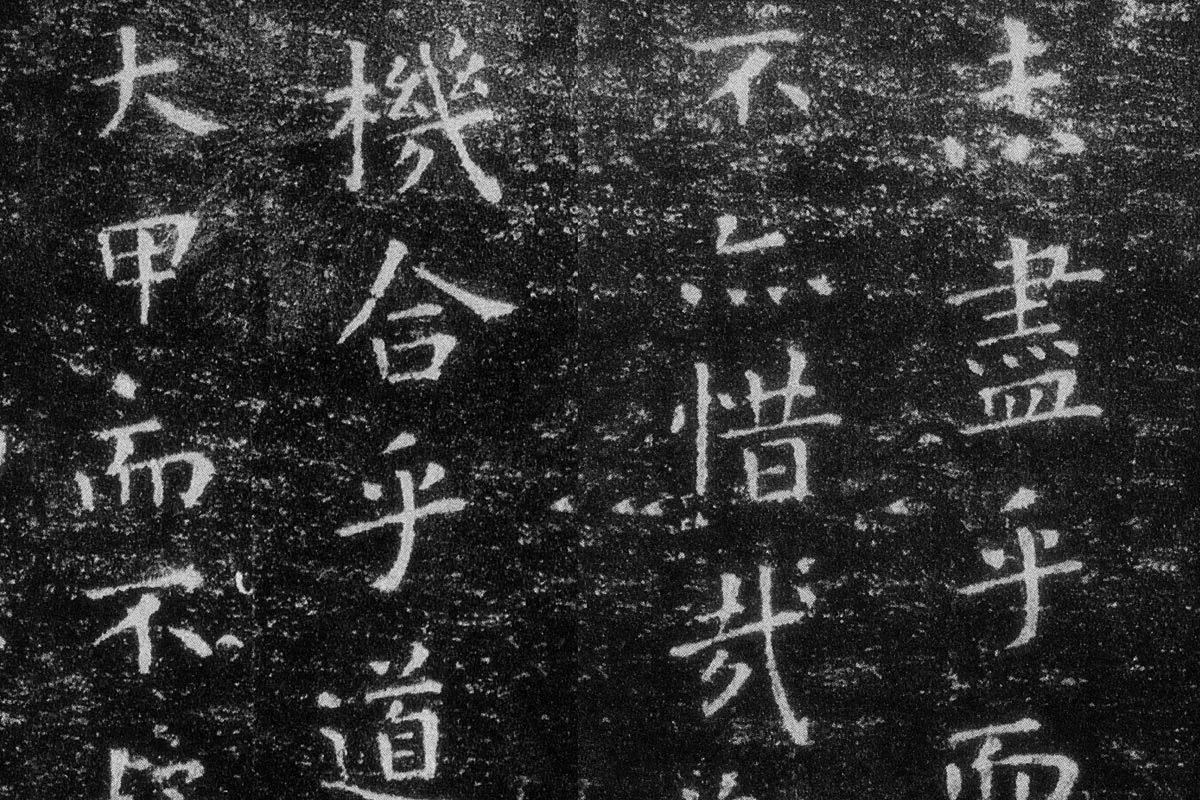 盡乎而
不無惜哉
機合乎道
大甲而不